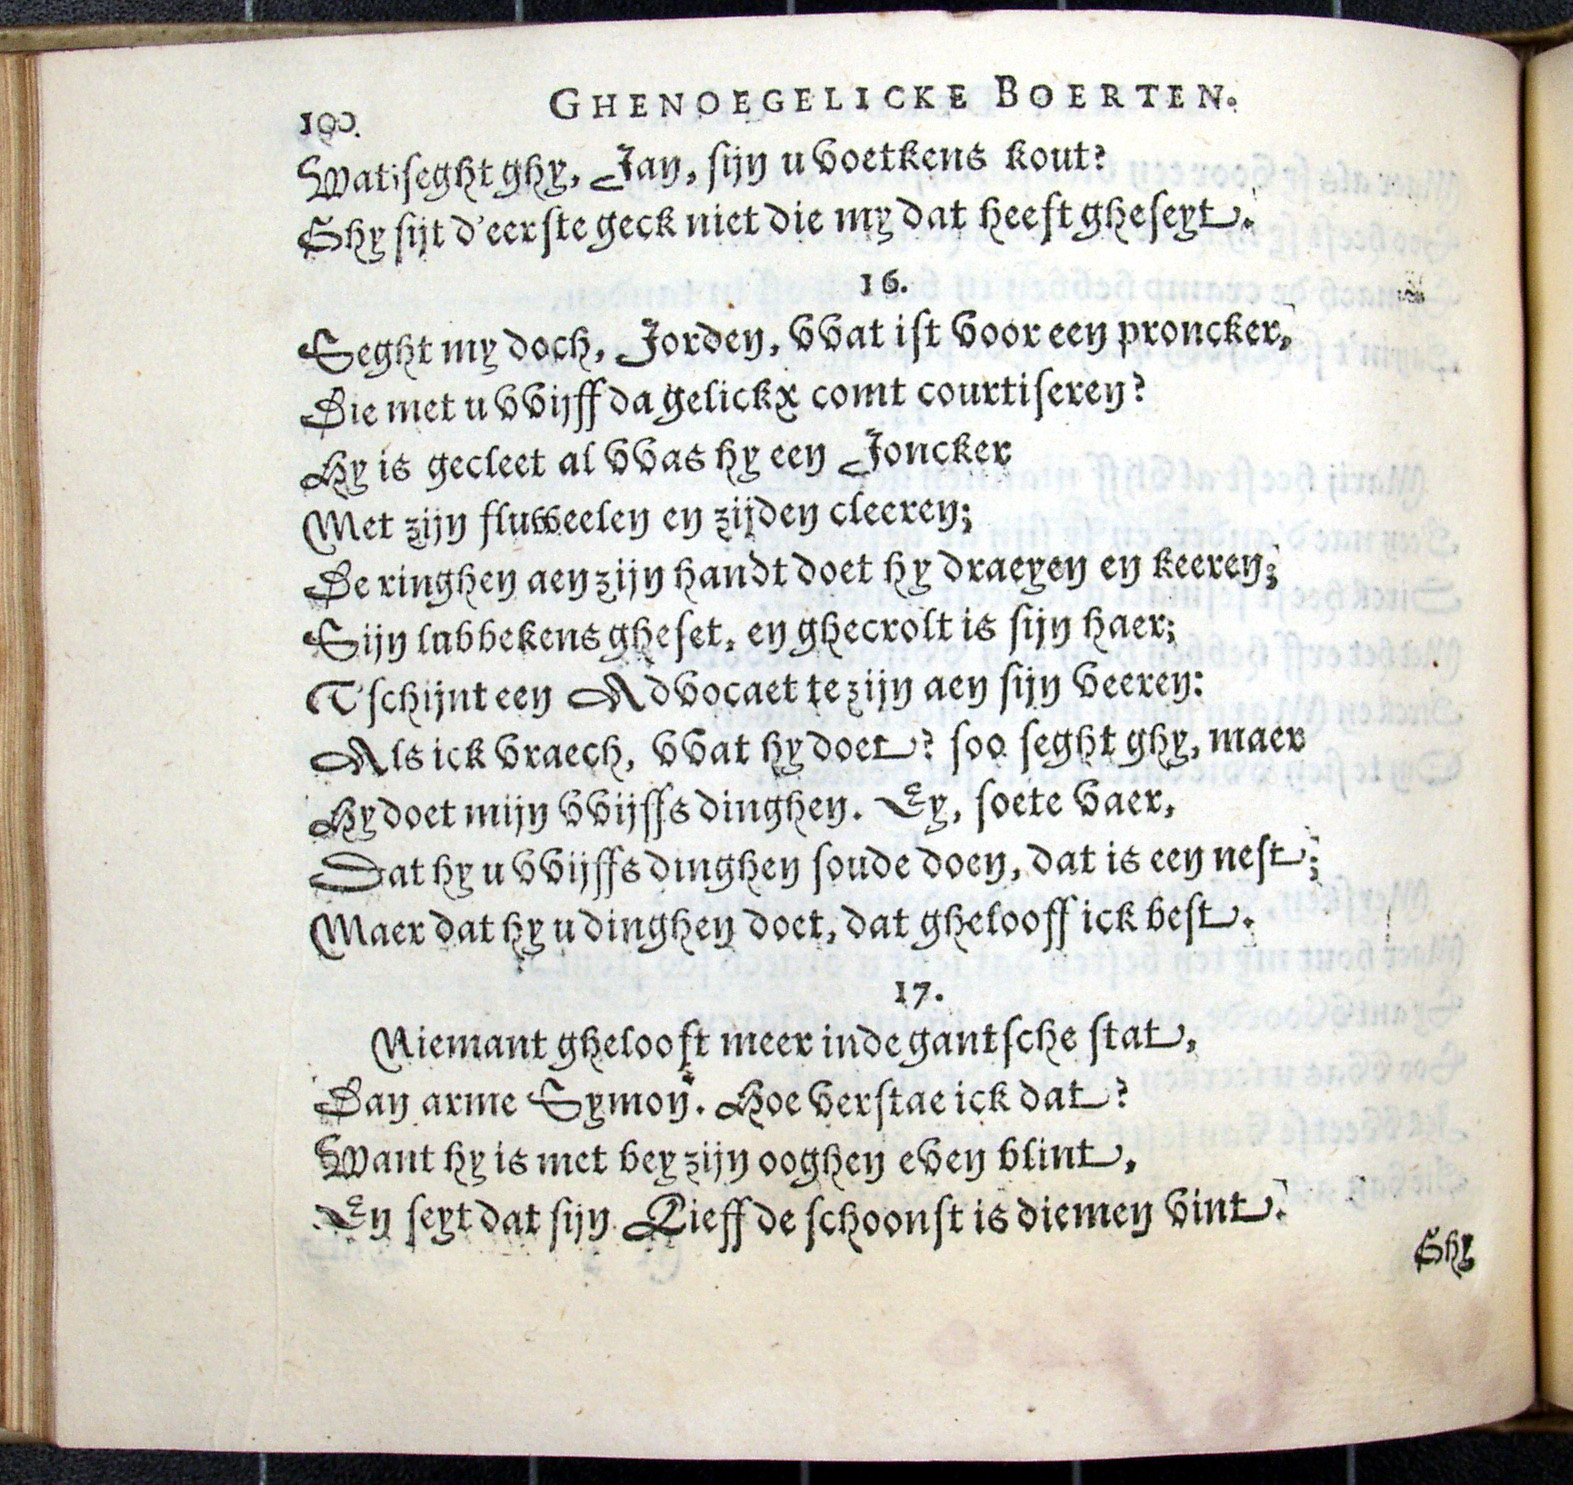 100.
GHENOEGELICKE BOERTEN.
Wat seght ghy, Jan, sijn u voetkens kout?
Ghy sijt d'eerste geck niet die my dat heeft gheseyt.
16.
Seght my doch, Jorden, vvat ist voor een proncker,
Die met u vvijff dagelickx comt courtiseren?
Hy is gecleet al vvas hy een Joncker
Met zijn fluweelen en zijden cleeren;
De ringhen aen zijn handt doet hy draeyen en keeren;
Sijn lubbekens gheset, en ghecrolt is sijn haer;
T'schijnt een Advocaet te zijn aen sijn veeren:
Als ick vraech, vvat hy doet? soo seght ghy, maer
Hy doet mijn vvijffs dinghen. Ey, soete vaer,
Dat hy u vvijffs dinghen soude doen, dat is een nest;
Maer dat hy u dinghen doet, dat ghelooff ick best.
17.
Niemant ghelooft meer inde gantsche stat,
Dan arme Symon. Hoe verstae ick dat?
Want hy is met bey zijn ooghen even blint,
En seyt dat sijn Lieff de schoonst is diemen vint.
Ghy